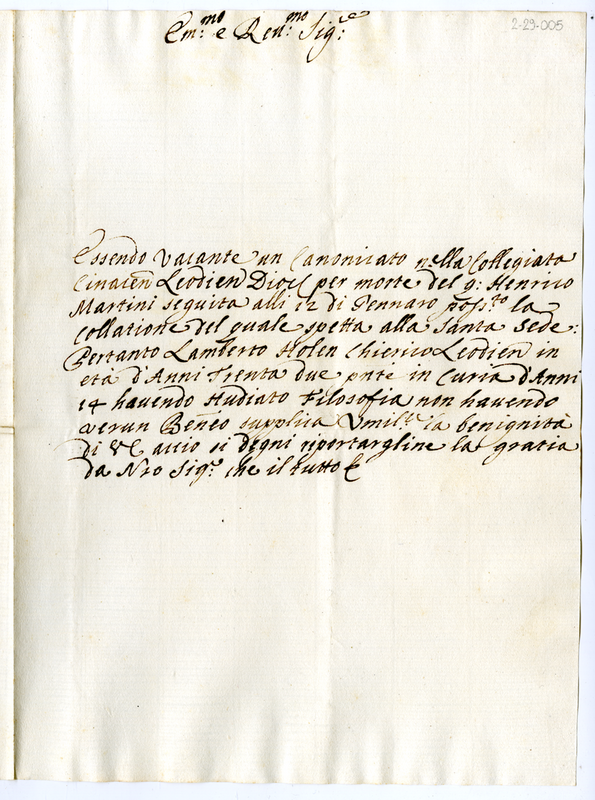 Em:mo e Reu:mo Sig:re
2-29-005
Essendo Vacante un Canonicato nella Collegiata
Cinacen Leodien Dioc per morte del q: Henrico
Martini seguita alli 12 di Gennaro pross:to la
Collatione del quale spetta alla Santa Sede:
Pertanto Lamberto Holen Chierico Leodien in
età d'Anni Trenta due pnte in Curia d'Anni
14 havendo studiato Filosofia non havendo
verun Beneo supplica Vmilte la benignità
di VE accio si degni riportargline la gratia
da Nro Sigre che il tutto &